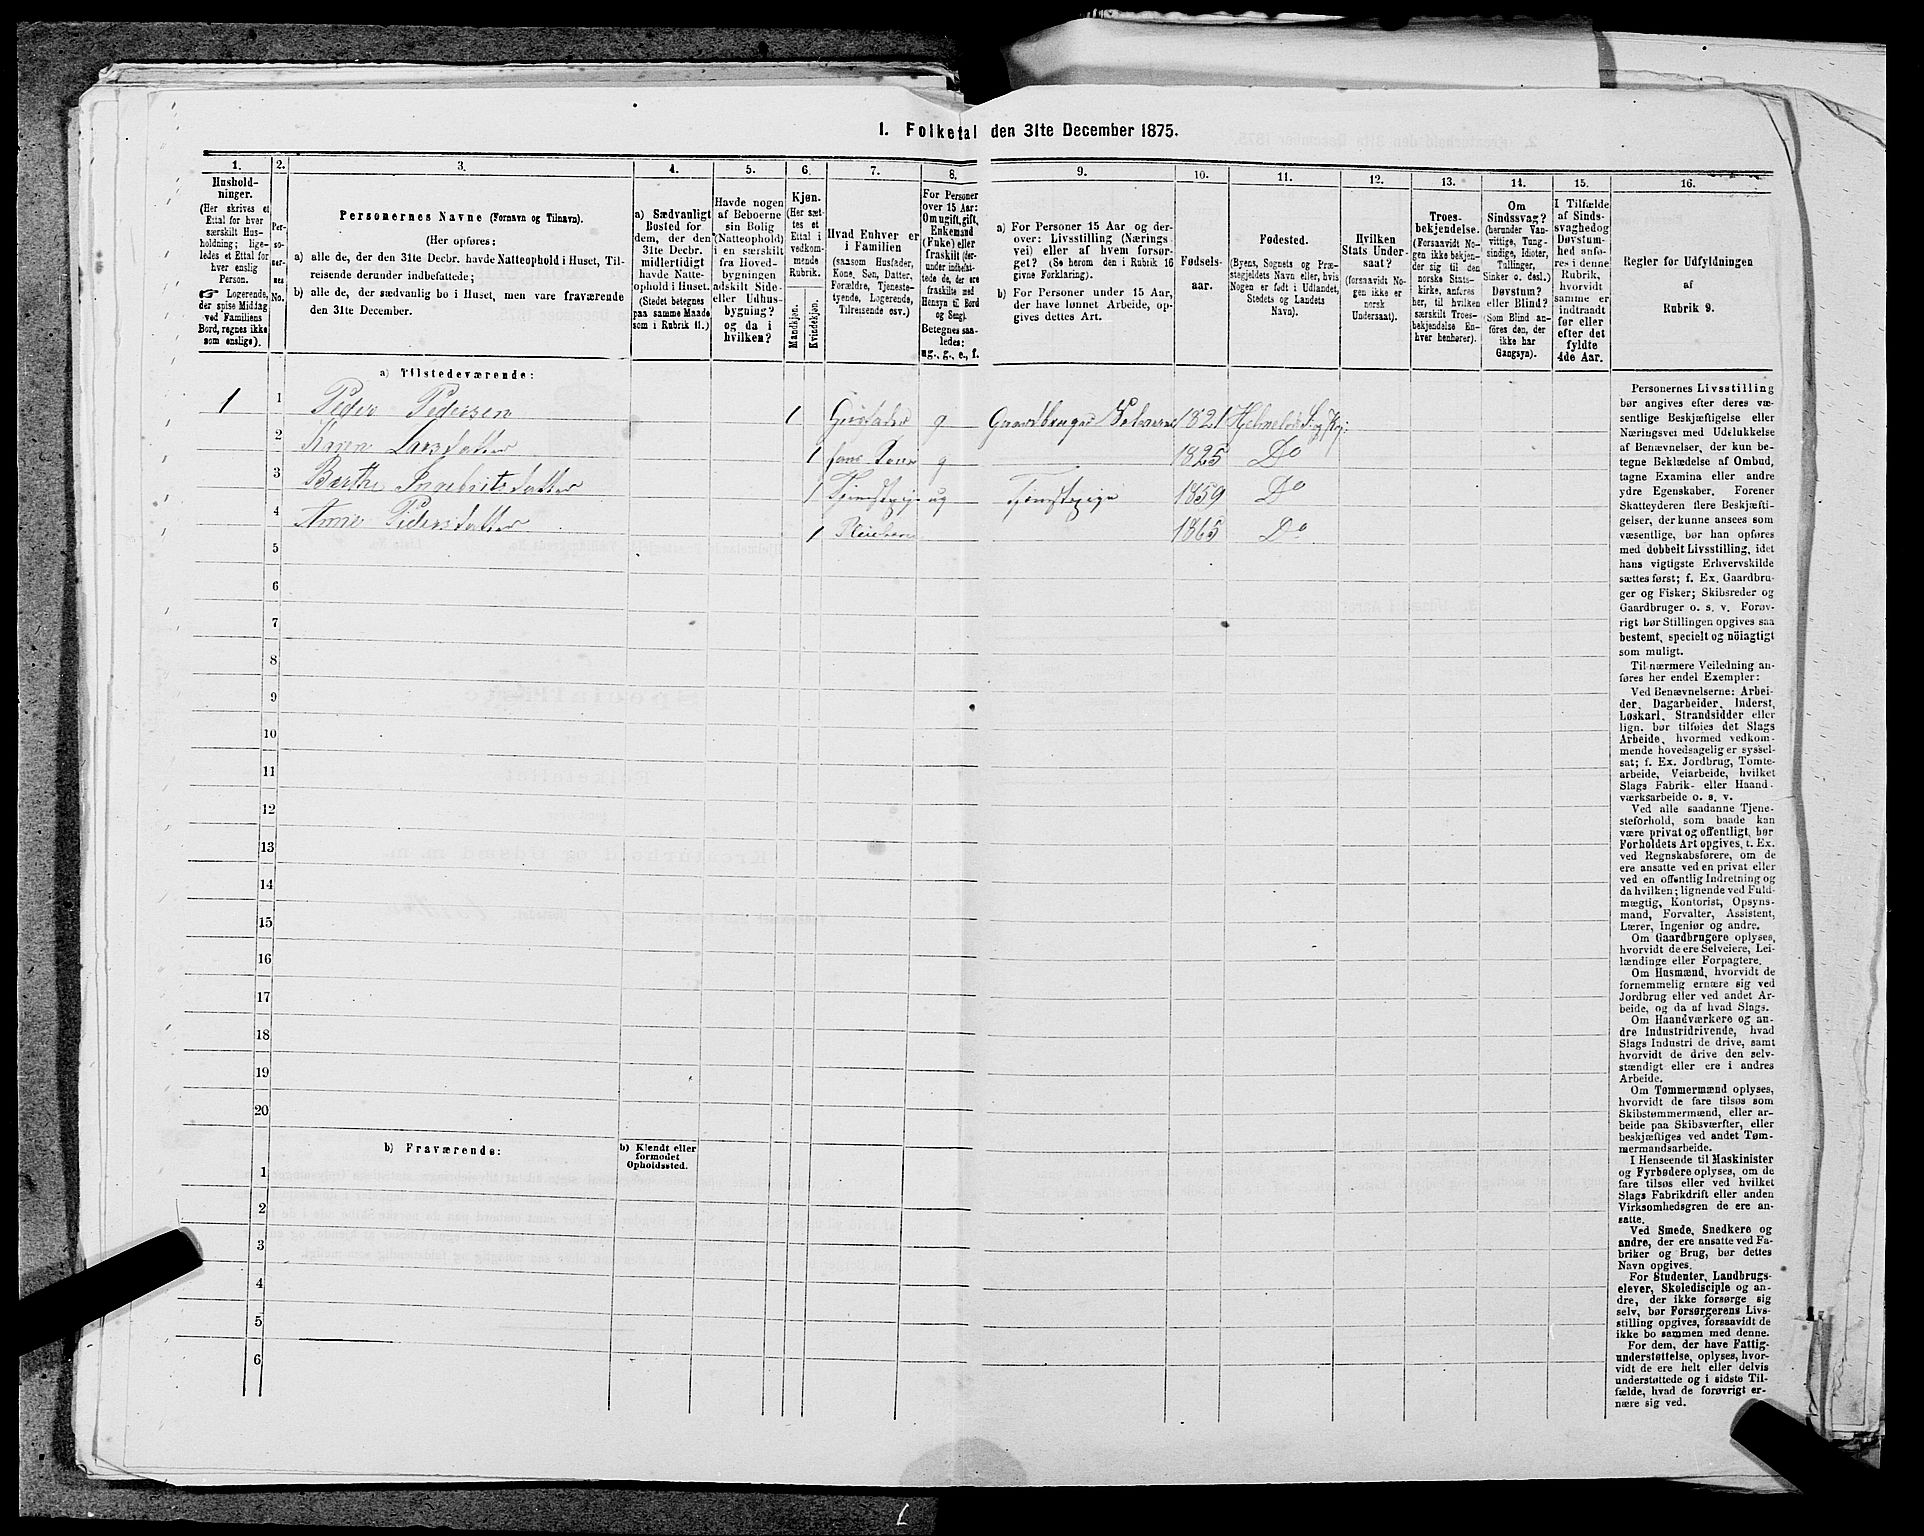 1. Folketal den 31te December 1875.
1. 2. 3. 4. 5. 6. 7. 8. 9. 10. 11. 12. 13. 14. 15. 16.
Hushold-
ninger.
(Her skrives et
Ettal for hver
særskilt Hus-
holdning; lige-
ledes et Ettal for
hver enslig
Person.
☞ Logerende,
der spise Middag
ved Familiens
Bord, regnes ikke
som enslige).
Per-
so-
ner-
nes
No.
Personernes Navne (Fornavn og Tilnavn).
(Her opføres:
a) alle de, der den 31te Decbr. havde Natteophold i Huset, Til-
reisende derunder indbefattede;
b) alle de, der sædvanlig bo i Huset, men vare fraværende
den 31te December.
a) Sædvanligt
Bosted for
dem, der den
31te Decbr.
midlertidigt
havde Natte-
ophold i Huset.
(Stedet betegnes
paa samme Maade
som i Rubrik 11.)
Havde nogen
af Beboerne
sin Bolig
(Natteophold)
i en særskilt
fra Hoved-
bygningen
adskilt Side-
eller Udhus-
bygning?
og da i
hvilken?
Kjøn.
(Her sæt-
tes et
Ettal i
vedkom-
mende
Rubrik.
Mandkjøn.
Kvindekjøn.
Hvad Enhver er
i Familien
(saasom Husfader,
Kone, Søn, Datter,
Forældre, Tjeneste-
tyende, Logerende,
Tilreisende osv.)
For Personer
over 15 Aar:
Om ugift, gift,
Enkemand
(Enke) eller
fraskilt (der-
under indbefat-
tede de, der ere
fraskilte med
Hensyn til Bord
og Seng).
Betegnes saa-
ledes:
ug., g., e., f.
a) For Personer 15 Aar og der-
over: Livsstilling (Nærings
vei) eller af hvem forsør-
get? (Se herom den i Rubrik 16
givne Forklaring).
b) For Personer under 15 Aar,
der have lønnet Arbeide, op-
gives dettes Art.
Fødsels-
aar.
Fødested.
(Byens, Sognets og Præ-
stegjeldets Navn eller, hvis
Nogen er født i Udlandet,
Stedets og Landets
Navn).
Hvilken
Stats Under-
saat?
(forsaavidt No-
gen ikke er
norsk
Undersaat).
Troes-
bekjendelse.
(Forsaavidt No-
gen ikke bekjen-
der sig til den
norske Stats-
kirke, anføres
her, til hvilken
særskilt Troes-
bekjendelse En-
hver henhører).
Om
Sindssvag?
(herunder Van-
vittige, Tung-
sindige, Idioter,
Tullinger,
Sinker o. desl.)
Døvstum?
eller Blind?
(Som Blind an-
føres den, der
ikke har
Gangsyn).
I Tilfælde
af Sinds-
svaghed og
Døvstum-
hed anfø-
res i denne
Rubrik,
hvorvidt
samme er
indtraadt
før eller
efter det
fyldte
4de Aar.
Regler for Udfyldningen
af
Rubrik 9.
a) Tilstedeværende:
1 1 Peder Pedersen 1 Husfader g Gaardbruger Selveier 1821
2 Karen Larsdatter 1 hans Kone g 1825 Do
3 Berthe Ingebritsdatter 1 Tjenstepige ug Tjenstepige 1859 Do
4 Anne Pedersdatter 1 Pleiebarn 1865 Do
5
6
7
8
9
10
11
12
13
14
15
16
17
18
19
20
b) Fraværende:
b) Kjendt eller
formodet
Opholdssted.
1
2
3
4
5
6
Personernes Livsstilling
bør angives efter deres væ-
sentlige Beskjæftigelse eller
Næringsvei med Udelukkelse
af Benævnelser, der kun be-
tegne Beklædelse af Ombud,
tagne Examina eller andre
ydre Egenskaber. Forener
Skatteyderen flere Beskjæfti-
gelser, der kunne ansees som
væsentlige, bør han opføres
med dobbelt Livsstilling, idet
hans vigtigste Erhvervskilde
sættes først; f. Ex. Gaardbru-
ger og Fisker; Skibsreder og
Gaardbruger o. s. v. Forøv-
rigt bør Stillingen opgives saa
bestemt, specielt og nöiagtigt
som muligt.
Til nærmere Veiledning an-
føres her endel Exempler:
Ved Benævnelserne: Arbei-
der, Dagarbeider, Inderst,
Løskarl, Strandsidder eller
lign. bør tilføies det Slags
Arbeide, hvormed vedkom-
mende hovedsagelig er syssel-
sat; f. Ex. Jordbrug, Tomte-
arbeide, Veiarbeide, hvilket
Slags Fabrik- eller Haand-
værksarbeide o. s. v.
Ved alle saadanne Tjene-
steforhold, som baade kan
være privat og offentligt, bør
Forholdets Art opgives, t. Ex.
ved Regnskabsførere, om de
ere ansatte ved en privat eller
ved en offentlig Indretning og
da hvilken; lignende ved Fuld-
mægtig, Kontorist, Opsyns-
mand, Forvalter, Assistent,
Lærer, Ingeniør og andre.
Om Gaardbrugere oplyses,
hvorvidt de ere Selveiere, Lei-
lændinge eller Forpagtere.
Om Husmænd, hvorvidt de
fornemmelig ernære sig ved
Jordbrug eller ved andet Ar-
beide, og da af hvad Slags.
Om Haandværkere og an-
dre Industridrivende, hvad
Slags Industri de drive, samt
hvorvidt de drive den selv-
stændigt eller ere i andres
Arbeide.
Om Tømmermænd oplyses,
hvorvidt de fare tilsøs som
Skibstømmermænd, eller ar-
beide paa Skibsværfter, eller
beskjæftiges ved andet Tøm-
mermandsarbeide.
I Henseende til Maskinister
og Fyrbødere oplyses, om de
fare tilsøs eller ved hvilket
Slags Fabrikdrift eller anden
Virksomhedsgren de ere an-
satte.
Ved Smede, Snedkere og
andre, der ere ansatte ved Fa-
briker og Brug, bør dettes
Navn opgives.
For Studenter, Landbrugs-
elever, Skoledisciple og an-
dre, der ikke forsørge sig
selv, bør Forsørgerens Livs-
stilling opgives, forsaavidt de
ikke bo sammen med denne.
For dem, der have Fattig-
understøttelse, oplyses, hvor-
vidt de ere helt eller delvis
understøttede og i sidste Til-
fælde, hvad de forøvrigt er-
nære sig ved.